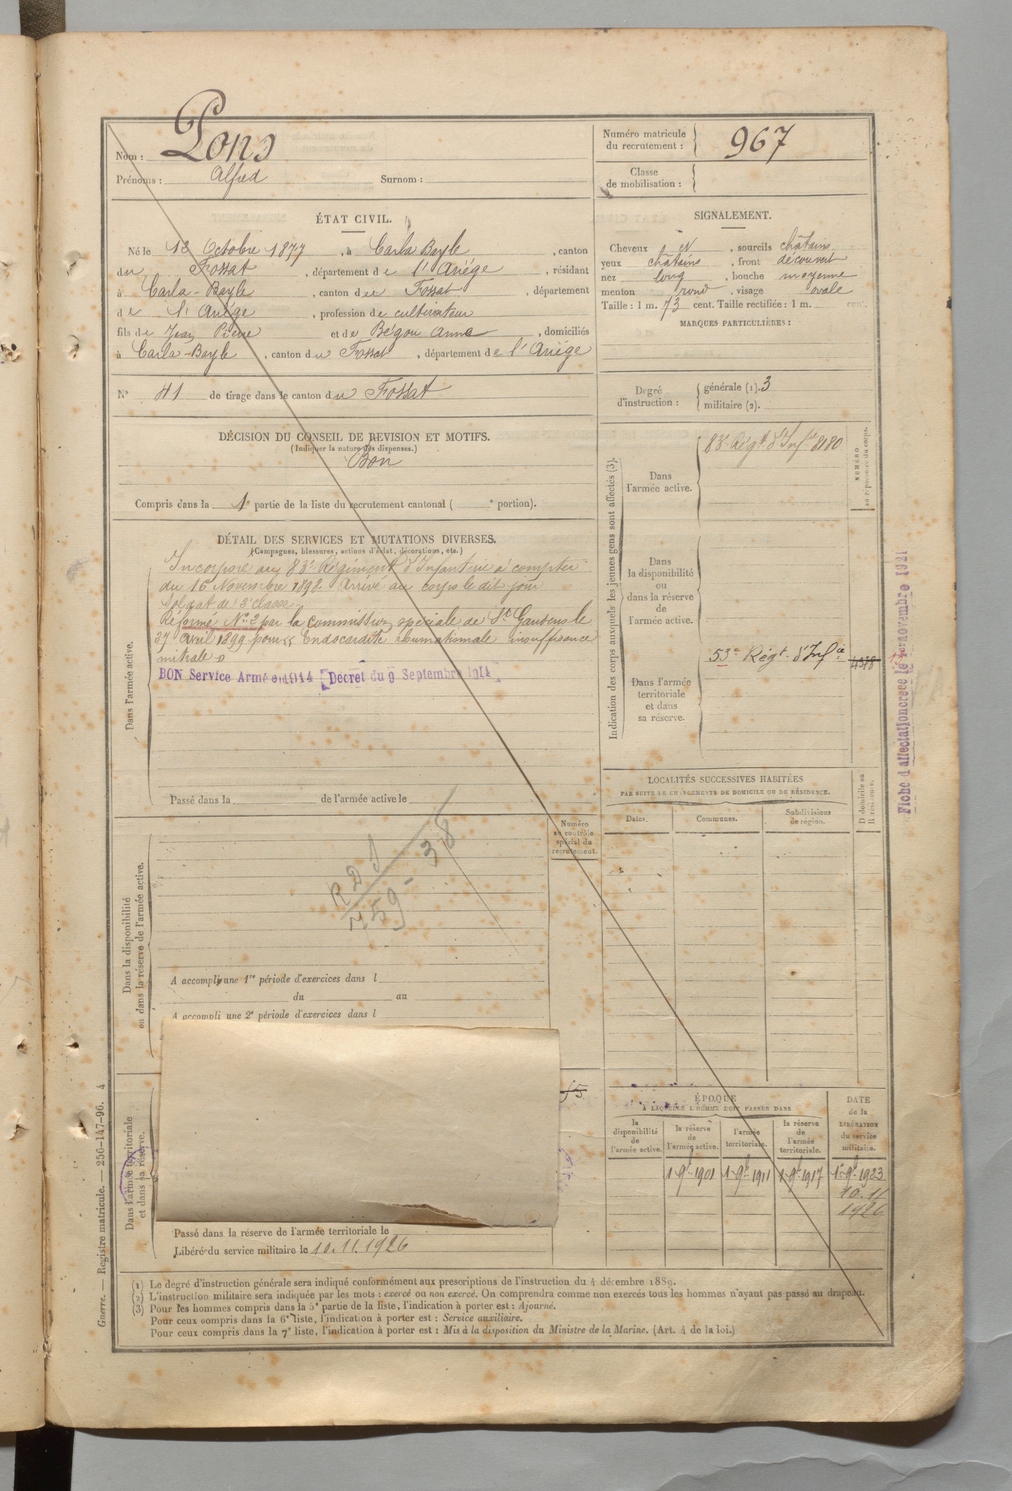 Nom : Pons
Prénoms : Alfred Surnom :
Numéro matricule du recrutement : 967
Classe de mobilisation :
ÉTAT CIVIL.
Né le 13 Octobre 1877, à Carla Bayle, canton
du Fossat, département de l'Ariège, résidant
à Carla-Bayle, canton du Fossat, département
de l'Ariège, profession de cultivateur
fils de Jean Pierre et de Bégou Anna, domiciliés
à Carla-Bayle, canton du Fossat, département de l'Ariège
N° 41 de tirage dans le canton du Fossat
SIGNALEMENT.
Cheveux, sourcils châtains
yeux châtains, front découvert
nez long, bouche moyenne
menton rond, visage ovale
Taille : 1 m. 73 cent. Taille rectifiée : 1 m. cent.
MARQUES PARTICULIÈRES :
Degré d'instruction : générale (1). 3
militaire (2).
DÉCISION DU CONSEIL DE REVISION ET MOTIFS.
(Indiquer la nature des dispenses.)
Bon
Compris dans la 1e partie de la liste du recrutement cantonal ( e portion).
DÉTAIL DES SERVICES ET MUTATIONS DIVERSES.
(Campagnes, blessures, actions d'éclat, décorations, etc.)
Dans l'armée active.
Incorporé au 83e Régiment d'Infanterie à compter
du 16 Novembre 1898 Arrivé au corps le dit jour
Soldat de 2e classe
Réformé N° 2 par la commission spéciale de St Gaudens le
27 avril 1899 pour Endocardite rhumatismale insuffisance
mitrale
BON Service Armé en 1914 Décret du 9 Septembre 1914
Passé dans la de l'armée active le
Indication des corps auxquels les jeunes gens sont affectés (3).
Dans l'armée active.
83e Régt d'Infie 8180
NUMÉRO
Dans la disponibilité ou dans la réserve de l'armée active.
Dans l'armée territoriale et dans sa réserve.
53e Régt d'Infie 4378
Fiche d'affectation créée le 1er novembre 1921
LOCALITÉS SUCCESSIVES HABITÉES
PAR SUITE DE CHANGEMENTS DE DOMICILE OU DE RÉSIDENCE.
Dates. Communes. Subdivisions de région.
D domicile ou R résidence.
Dans la disponibilité ou dans la réserve de l'armée active.
Numéro au contrôle spécial du recrutement.
A accompli une 1re période d'exercices dans l
du au
A accompli une 2e période d'exercices dans l
Dans l'armée territoriale et dans sa réserve.
Passé dans la réserve de l'armée territoriale le
Libéré du service militaire le 10.11.1926
ÉPOQUE
À LAQUELLE L'HOMME DOIT PASSER DANS
la disponibilité de l'armée active.
la réserve de l'armée active.
l'armée territoriale.
la réserve de l'armée territoriale.
DATE de la LIBÉRATION du service militaire.
1 9bre 1901 1 9bre 1911 1 9bre 1917 1er 9bre 1923
10.11
1926
(1) Le degré d'instruction générale sera indiqué conformément aux prescriptions de l'instruction du 4 décembre 1889.
(2) L'instruction militaire sera indiquée par les mots : exercé ou non exercé. On comprendra comme non exercés tous les hommes n'ayant pas passé au drapeau.
(3) Pour les hommes compris dans la 5e partie de la liste, l'indication à porter est : Ajourné.
Pour ceux compris dans la 6e liste, l'indication à porter est : Service auxiliaire.
Pour ceux compris dans la 7e liste, l'indication à porter est : Mis à la disposition du Ministre de la Marine. (Art. 4 de la loi.)
Guerre. — Registre matricule. — 256-147-96. 4